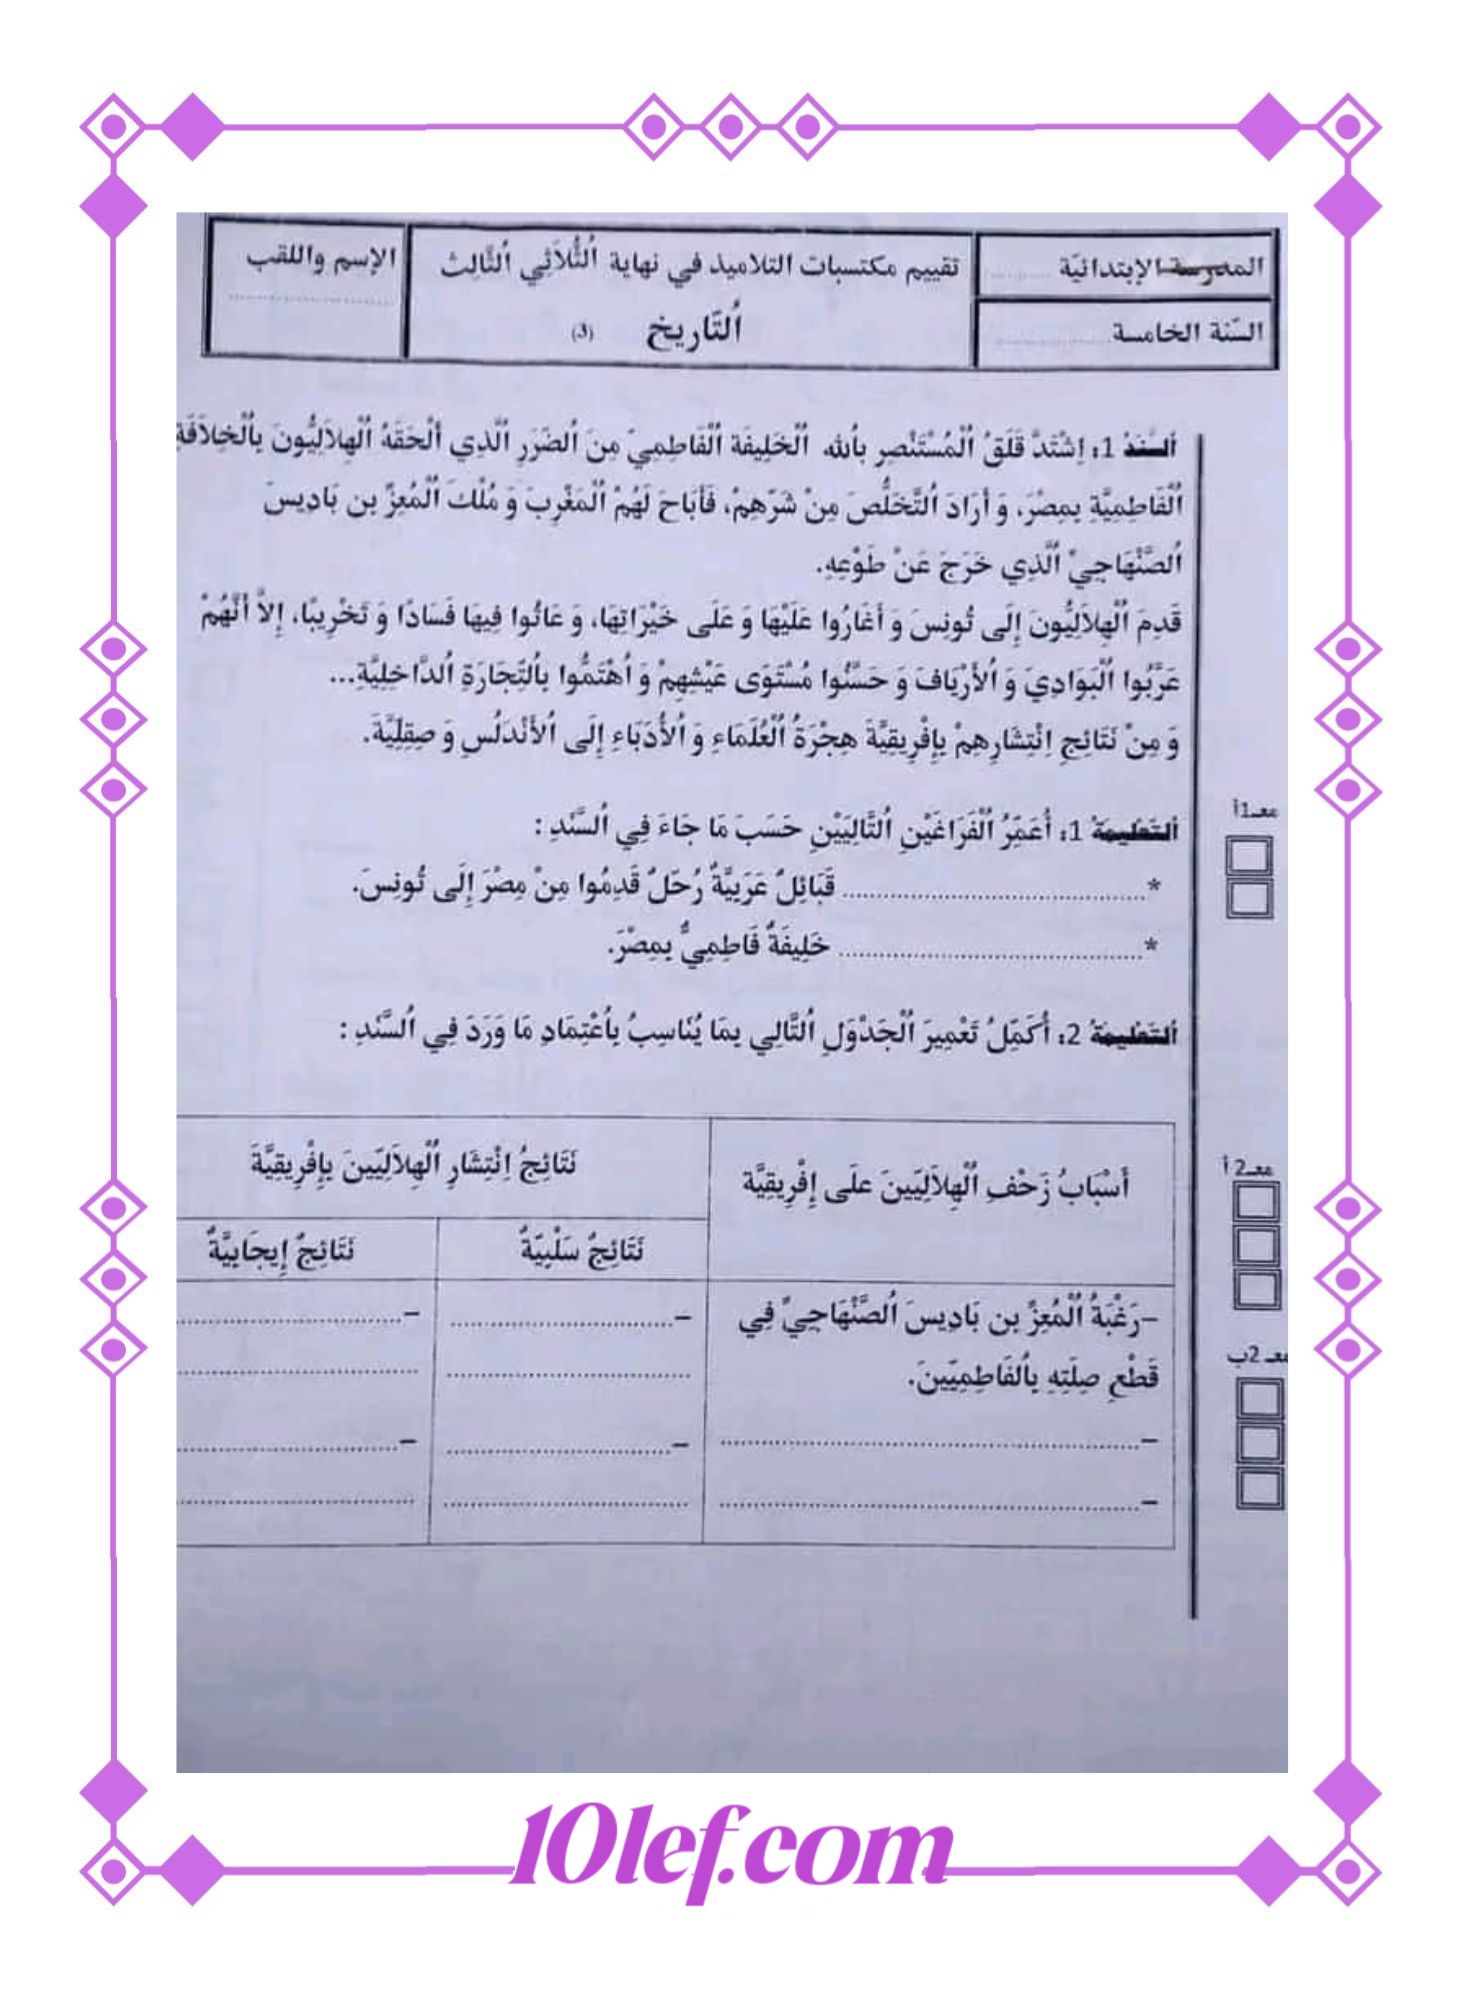 المدرسة الإبتدائيّة ............
تقييم مكتسبات التلاميذ في نهاية ٱلثُّلاَثِي ٱلثَّالِث
الإسم واللقب
السّنة الخامسة ............
ٱلتَّارِيخ (3)
ٱلسَّنَدُ 1: اِشْتَدَّ قَلَقُ ٱلْمُسْتَنْصِرِ بِٱلله ٱلْخَلِيفَة ٱلْفَاطِمِيّ مِنَ ٱلضَّرَرِ ٱلَّذِي أَلْحَقَهُ ٱلْهِلاَلِيُّونَ بِٱلْخِلاَفَةِ
ٱلْفَاطِمِيَّةِ بِمِصْرَ، وَ أَرَادَ ٱلتَّخَلُّصَ مِنْ شَرِّهِمْ، فَأَبَاحَ لَهُمُ ٱلْمَغْرِبَ وَ مُلْكَ ٱلْمُعِزِّ بن بَادِيسَ
ٱلصَّنْهَاجِيّ ٱلَّذِي خَرَجَ عَنْ طَوْعِهِ.
قَدِمَ ٱلْهِلاَلِيُّونَ إِلَى تُونِسَ وَ أَغَارُوا عَلَيْهَا وَ عَلَى خَيْرَاتِهَا، وَ عَاثُوا فِيهَا فَسَادًا وَ تَخْرِيبًا، إِلاَّ أَنَّهُمْ
عَرَّبُوا ٱلْبَوَادِيَ وَ ٱلأَرْيَافَ وَ حَسَّنُوا مُسْتَوَى عَيْشِهِمْ وَ ٱهْتَمُّوا بِٱلتِّجَارَةِ ٱلدَّاخِلِيَّةِ...
وَ مِنْ نَتَائِجِ اِنْتِشَارِهِمْ بِإِفْرِيقِيَّةَ هِجْرَةُ ٱلْعُلَمَاءِ وَ ٱلأُدَبَاءِ إِلَى ٱلأَنْدَلُسِ وَ صِقِلِّيَّةَ.
معـ1أ
ٱلتَّعْلِيمَةُ 1: أُعَمِّرُ ٱلْفَرَاغَيْنِ ٱلتَّالِيَيْنِ حَسَبَ مَا جَاءَ فِي ٱلسَّنَدِ :
* ........................................ قَبَائِلُ عَرَبِيَّةٌ رُحَّلٌ قَدِمُوا مِنْ مِصْرَ إِلَى تُونِسَ.
* ........................................ خَلِيفَةٌ فَاطِمِيٌّ بِمِصْرَ.
ٱلتَّعْلِيمَةُ 2: أُكَمِّلُ تَعْمِيرَ ٱلْجَدْوَلِ ٱلتَّالِي بِمَا يُنَاسِبُ بِٱعْتِمَادِ مَا وَرَدَ فِي ٱلسَّنَدِ :
معـ2 أ
أَسْبَابُ زَحْفِ ٱلْهِلاَلِيّينَ علَى إِفْرِيقِيَّة
نَتَائِجُ اِنْتِشَارِ ٱلْهِلاَلِيّينَ بِإِفْرِيقِيَّةَ
نَتَائِجٌ سَلْبِيَّةٌ
نَتَائِجٌ إِيجَابِيَّةٌ
–رَغْبَةُ ٱلْمُعِزِّ بن بَادِيسَ ٱلصَّنْهَاجِيّ فِي
قَطْعِ صِلَتِهِ بِٱلفَاطِمِيّينَ.
معـ 2ب
10lef.com